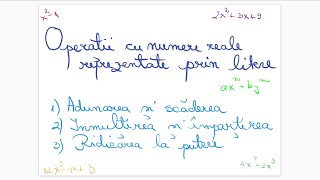 x² - 1
2x² + 3x + 9
Operatii cu numere reale
reprezentate prin litere
axⁿ + byᵐ
1) Adunarea si scăderea
2) Inmultirea si împartirea
3) Ridicarea la putere